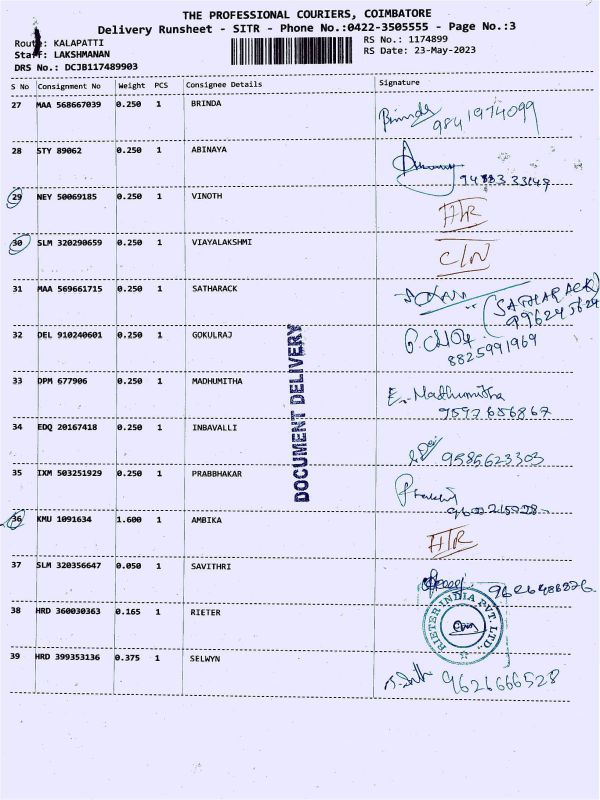 THE PROFESSIONAL COURIERS, COIMBATORE
Delivery Runsheet - SITR - Phone No.:0422-3505555 - Page No.:3
Route: KALAPATTI
RS No.: 1174899
Staff: LAKSHMANAN
RS Date: 23-May-2023
DRS No.: DCJB117489903
S No Consignment No Weight PCS Consignee Details Signature
27 MAA 568667039 0.250 1 BRINDA Brinda
9841974099
28 STY 89062 0.250 1 ABINAYA
29 NEY 50069185 0.250 1 VINOTH
30 SLM 320290659 0.250 1 VIAYALAKSHMI
31 MAA 569661715 0.250 1 SATHARACK (SATHARACK)
32 DEL 910240601 0.250 1 GOKULRAJ
8825991969
33 DPM 677906 0.250 1 MADHUMITHA E. Madhumitha
9597656867
34 EDQ 20167418 0.250 1 INBAVALLI
9585623303
35 IXM 503251929 0.250 1 PRABBHAKAR
36 KMU 1091634 1.600 1 AMBIKA
37 SLM 320356647 0.050 1 SAVITHRI
38 HRD 360030363 0.165 1 RIETER RIETER INDIA PVT. LTD.,
39 HRD 399353136 0.375 1 SELWYN
9626666528
DOCUMENT DELIVERY